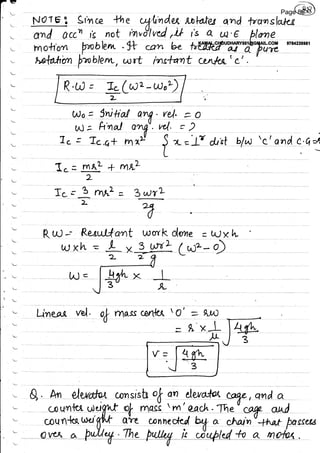 Page
NOTE: Since the cylinder rotates and translates
and accⁿ is not involved, it is a W-E plane
motion problem. It can be treated as a pure
KAMAL_CHOUDHARY001@GMAIL.COM 9784239881
rotation problem, wrt instant center 'c'.
R.W = Ic (ω² - ω₀²) / 2
ω₀ = Initial ang. vel. = 0
ω = final ang. vel. = ?
Ic = Ic.G + mx² { x = ⊥r dist b/w 'c' and C.G
Ic = mr²/2 + mr²
Ic = 3/2 mr² = 3wr²/2g
R.W - Resultant work done = W x h
W x h = 1/2 x 3/2 wr²/g (ω² - 0)
ω = √4gh/3 x 1/r
Linear vel. of mass center 'O' = rω
= r x 1/r √4gh/3
V = √4gh/3
Q. An elevator consists of an elevator cage, and a
counter weight of mass 'm' each. The cage and
counter weight are connected by a chain that passes
over a pulley. The pulley is coupled to a motor.